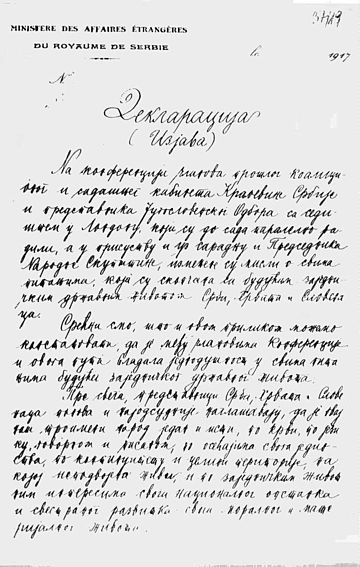 MINISTERE DES AFFAIRES ÉTRANGÈRES
DU ROYAUME DE SERBIE
le 1917
№
Декларација
(Изјава)
На конференцији чланова прошлог коалици-
оног и садашњег кабинета Краљевине Србије
и представника Југословенског Одбора са седи-
штем у Лондону, који су до сада паралелно ра-
дили, а у присуству и Председника
Народне Скупштине, измењене су мисли о свима
питањима, која су скопчана са будућим заједни-
чким државним животом Срба, Хрвата и Словена-
ца.
Срећни смо, што и овом приликом можемо
констатовати, да је међу члановима Конференције
и овога пута владала једнодушност у свима пита-
њима будућег заједничког државног живота.
Пре свега, представници Срба, Хрвата и Слове-
наца поново и најодсудније наглашавају, да је овај
наш троимени народ један и исти, по крви, по јези-
ку, говорном и писаном, по осећајима свога једин-
ства, по континуитету и целини територије, на
којој неподвојено живи, и по заједничким живот-
ним интересима свога националног опстанка
и свестраног развитка свога моралног и мате-
ријалног живота.